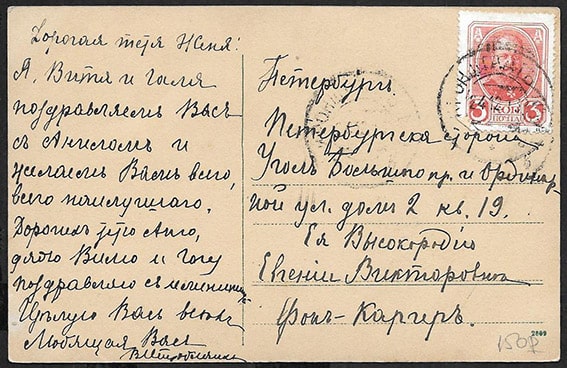 Дорогая тетя Женя!
Я, Витя и Галя
поздравляемъ Васъ
съ Ангеломъ и
желаемъ Вамъ всего,
всего наилучшаго.
Дорогихъ тетю Аню,
дядю Вилю и Гогу
поздравляю съ
Цѣлую Васъ
Любящая Васъ
Петербургъ.
Петербургская сторона
Уголъ Большого пр. и Ординар-
ной ул. домъ 2 кв. 19.
Ея Высокородію
Евгеніи Викторовнѣ
фонъ-Каргеръ.
3 КОП 3
ПОЧТА
КРОНШТАДТЪ
2869
150р